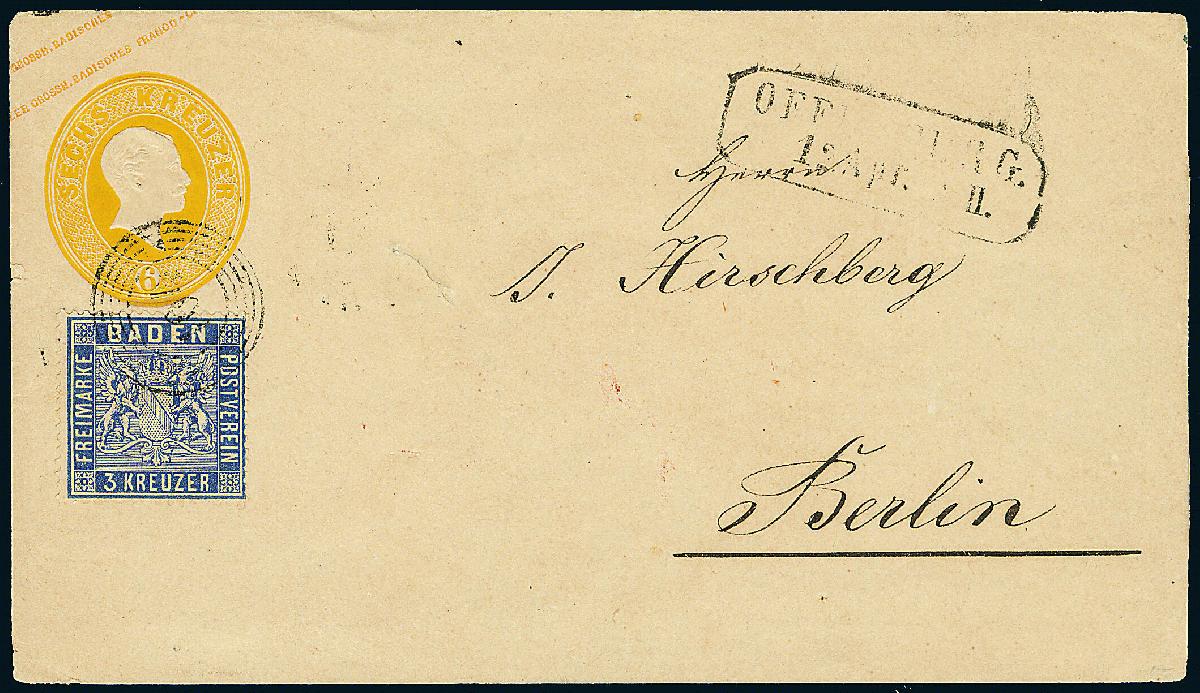 GROSSH. BADISCHES
GROSSH. BADISCHES FRANCO-C
SECHS KREUZER
6
BADEN
FREIMARKE
POSTVEREIN
3 KREUZER
OFF RG.
Apr. II.
Herrn
J. Hirschberg
Berlin